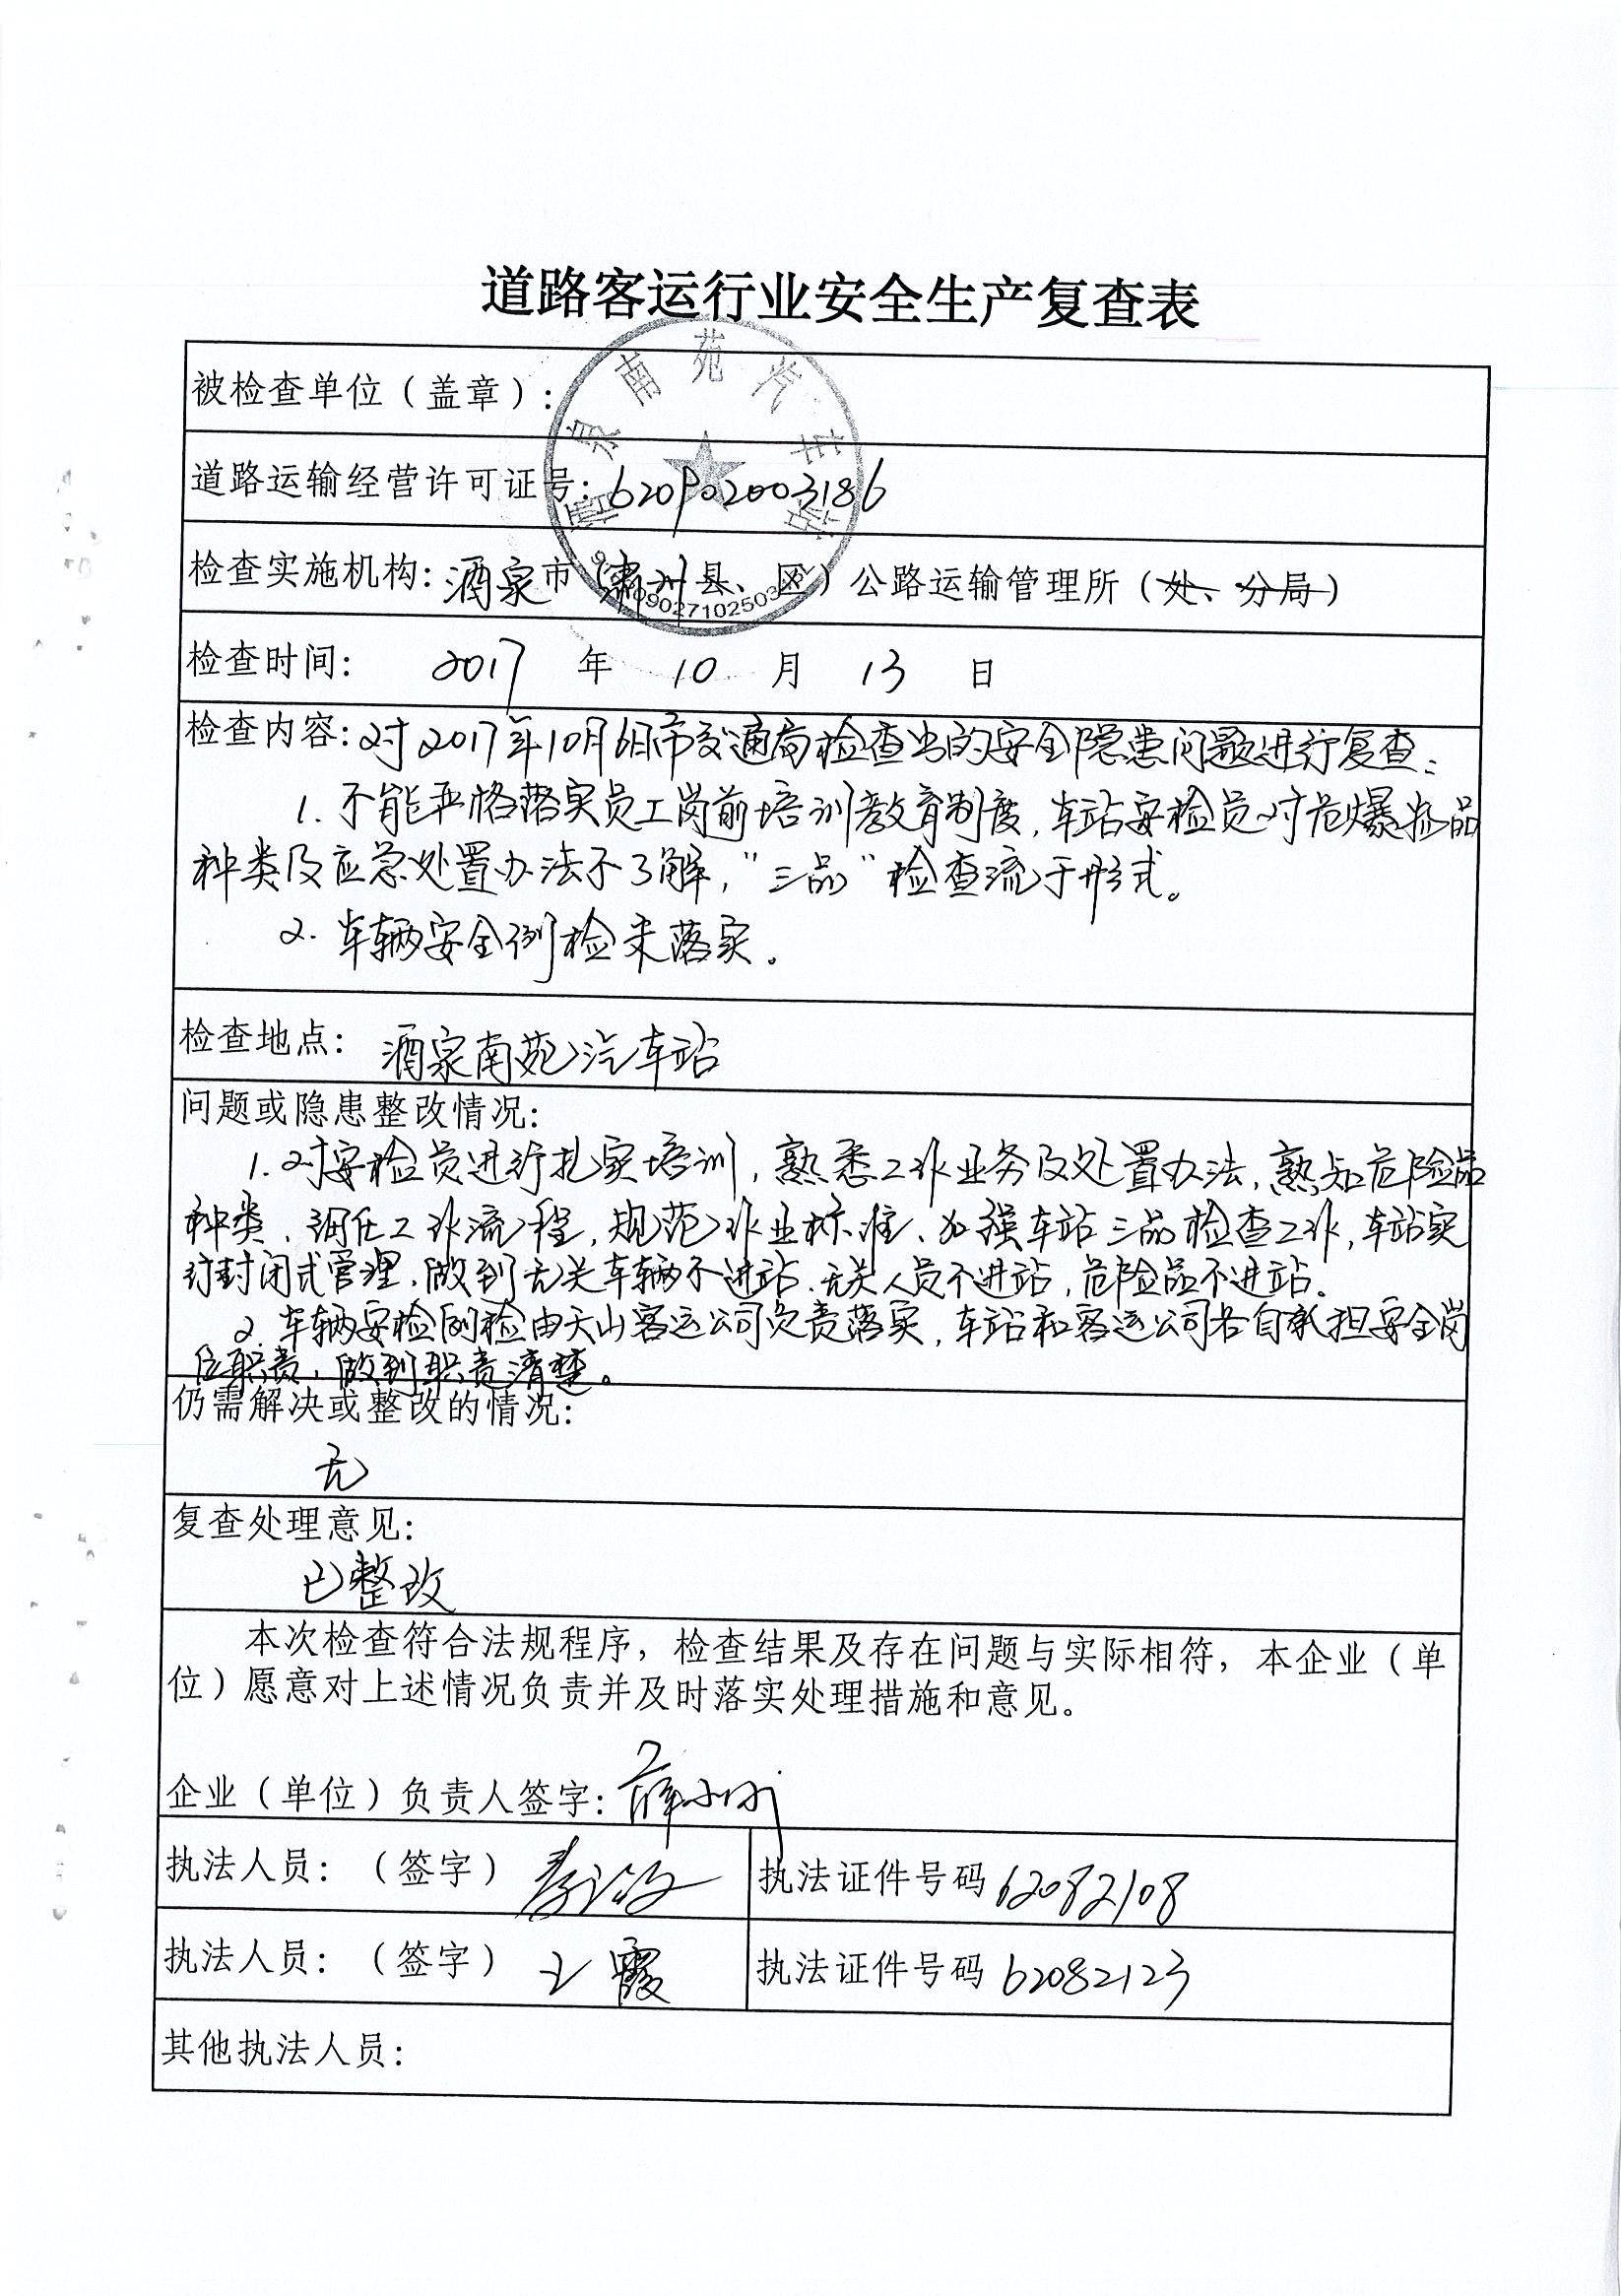 道路客运行业安全生产复查表
被检查单位（盖章）：
酒泉南苑汽车站
道路运输经营许可证号：620902003186
检查实施机构：酒泉市（肃州县、区）公路运输管理所（处、分局）
检查时间： 2017 年 10 月 13 日
检查内容：对2017年10月6日市交通局检查出的安全隐患问题进行复查：
1. 不能严格落实员工岗前培训教育制度，车站安检员对危爆物品
种类及应急处置办法不了解，“三品”检查流于形式。
2. 车辆安全例检未落实。
检查地点： 酒泉南苑汽车站
问题或隐患整改情况：
1. 对安检员进行扎实培训，熟悉工作业务及处置办法，熟知危险品
种类、工作流程，规范作业标准、加强车站三品检查工作，车站实
行封闭式管理，做到无关车辆不进站、无关人员不进站，危险品不进站。
2. 车辆安检例检由天山客运公司负责落实，车站和客运公司各自承担安全岗
位职责，做到职责清楚。
仍需解决或整改的情况：
无
复查处理意见：
已整改
本次检查符合法规程序，检查结果及存在问题与实际相符，本企业（单
位）愿意对上述情况负责并及时落实处理措施和意见。
企业（单位）负责人签字：
执法人员：（签字） 执法证件号码 62082108
执法人员：（签字） 王霞 执法证件号码 62082123
其他执法人员：